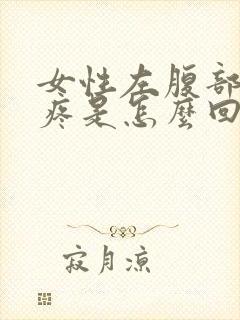 女性左腹部
疼是怎麼回
寂月凉